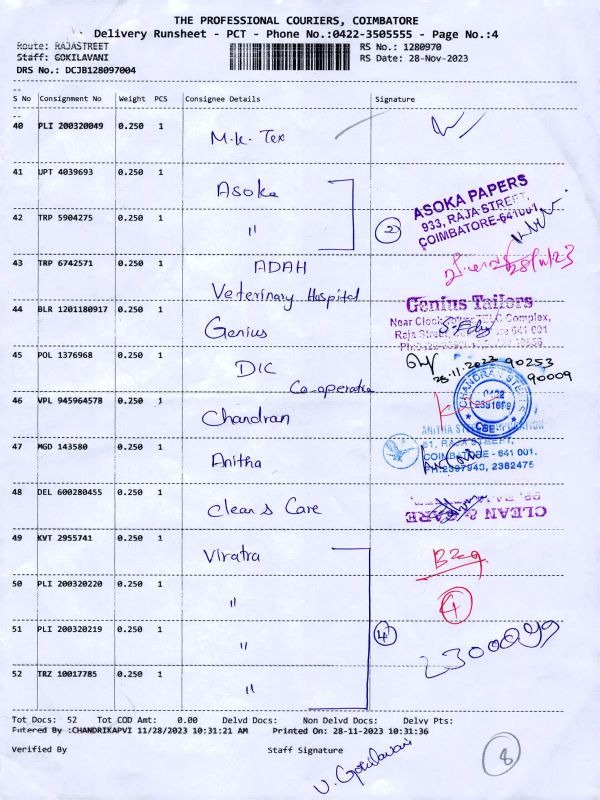 THE PROFESSIONAL COURIERS, COIMBATORE
Delivery Runsheet - PCT - Phone No.:0422-3505555 - Page No.:4
Route: RAJASTREET RS No.: 1280970
Staff: GOKILAVANI RS Date: 28-Nov-2023
DRS No.: DCJB128097004
S No Consignment No Weight PCS Consignee Details Signature
40 PLI 200320049 0.250 1 M.K. Tex
41 UPT 4039693 0.250 1 Asoka
ASOKA PAPERS
933, RAJA STREET,
COIMBATORE-641001
42 TRP 5904275 0.250 1 " 2
43 TRP 6742571 0.250 1 ADAH
Veterinary Hospital
28/11/23
44 BLR 1201180917 0.250 1 Genius
Genius Tailors
Near Clock Complex,
Raja Street, 641 001
45 POL 1376968 0.250 1 DIC
Co-operative
28.11.2023 90253
90009
46 VPL 945964578 0.250 1 Chandran
CHANDRAN STEELS
0422
CBE
47 MGD 143580 0.250 1 Anitha
ANITHA
61, RAJA STREET,
COIMBATORE - 641 001.
PH:2397943, 2382475
48 DEL 600280455 0.250 1 Clean & Care
CLEAN & CARE
49 KVT 2955741 0.250 1 Viratra
50 PLI 200320220 0.250 1 " 4
51 PLI 200320219 0.250 1 " 4
52 TRZ 10017785 0.250 1 "
Tot Docs: 52 Tot COD Amt: 0.00 Delvd Docs: Non Delvd Docs: Delvy Pts:
Entered By :CHANDRIKAPVI 11/28/2023 10:31:21 AM Printed On: 28-11-2023 10:31:36
Verified By Staff Signature
V. Gokilavani
8